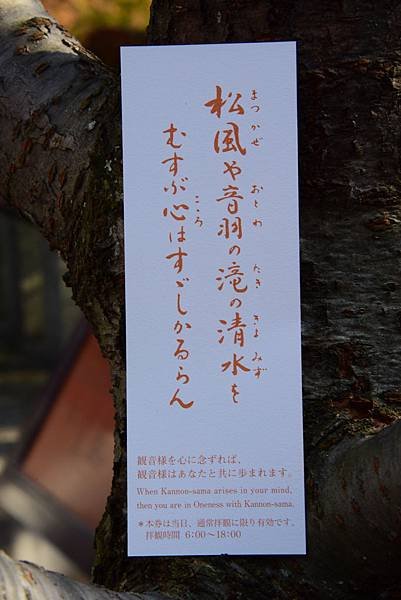 松風や音羽の滝の清水を
まつかぜ おとわ たき きよみず
むすぶ心はすゞしかるらん
こころ
観音様を心に念ずれば、
観音様はあなたと共に歩まれます。
When Kannon-sama arises in your mind,
then you are in Oneness with Kannon-sama.
＊本券は当日、通常拝観に限り有効です。
拝観時間 6:00～18:00